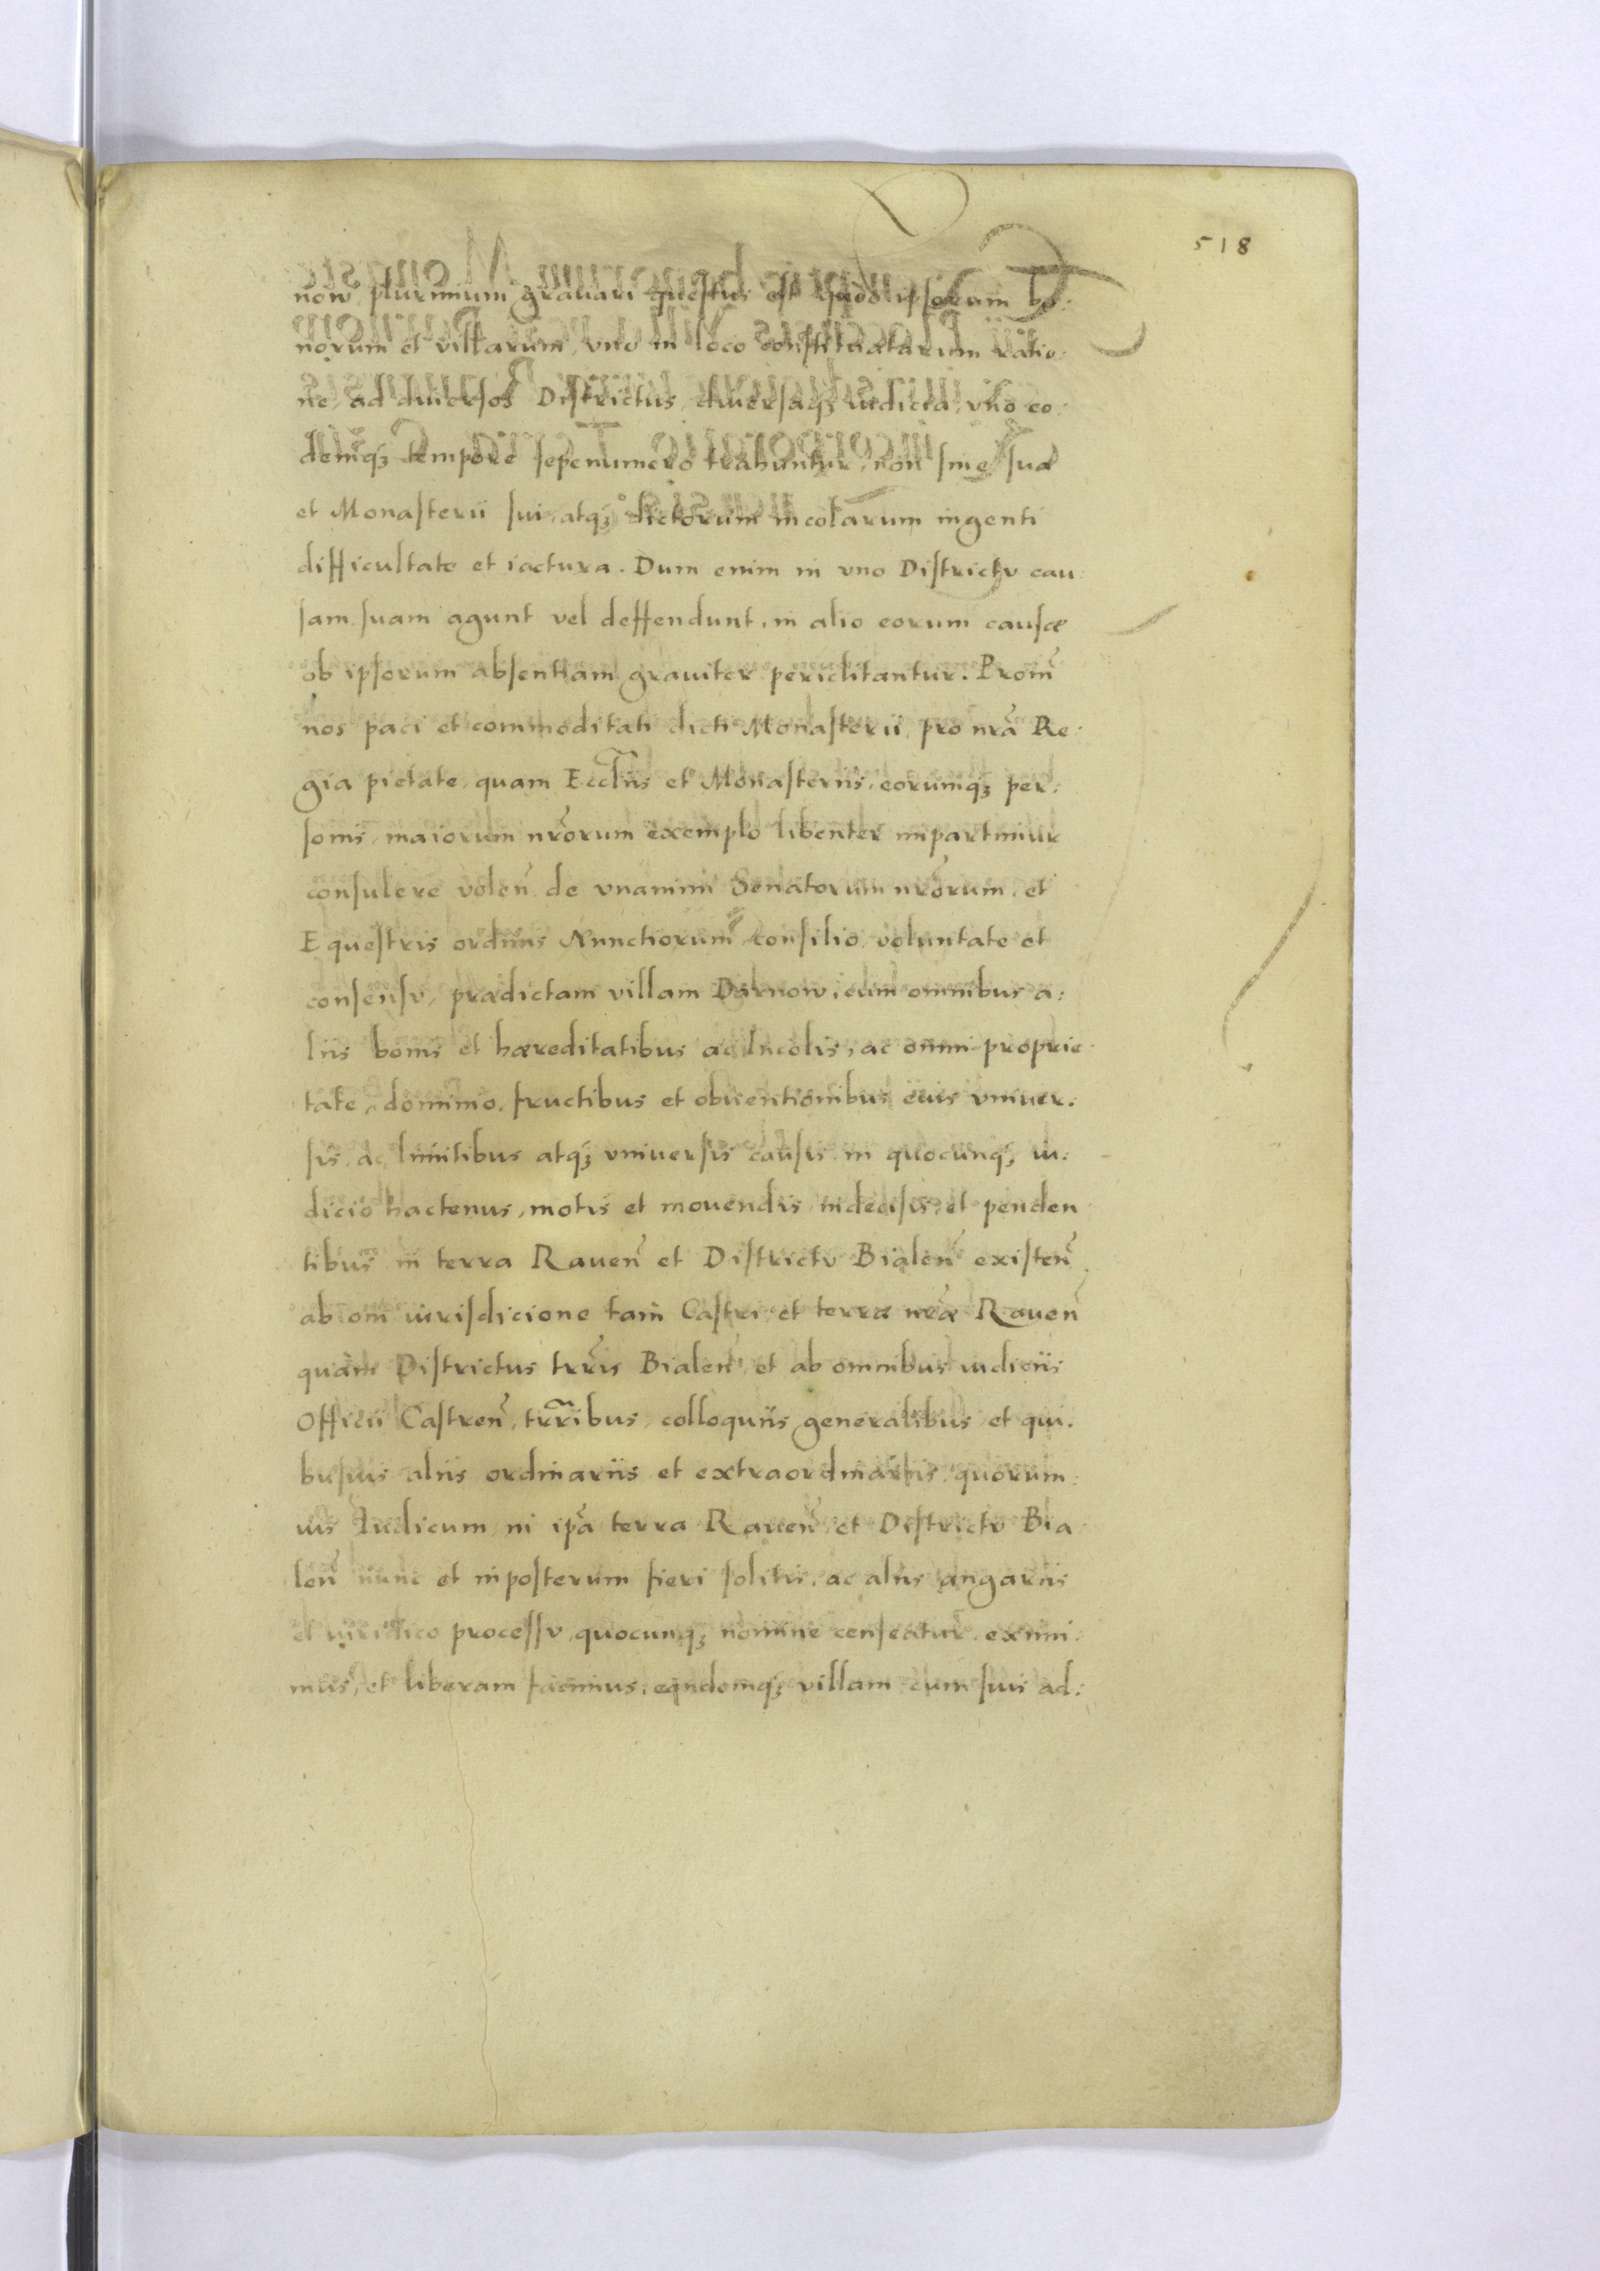 518
now plurimum gravari questus est quod ipsorum bo:
norum et villarum, vno in loco constitutarum ratio:
ne, ad diversos Districtus, diversaq₃ iudicia, vno eo:
demq₃ tempore sepenumero trahuntur, non sine sua
et Monasterii sui, atq₃ dictorum incolarum ingenti
difficultate et iactura. Dum enim in vno Districtv cau:
sam suam agunt vel deffendunt, in alio eorum causæ
ob ipsorum absentiam graviter periclitantur. Proin̄
nos paci et commoditati dicti Monasterii, pro nr̄a Re:
gia pietate, quam Eccl̄iis et Monasteriis, eorumq₃ per:
sonis, maiorum nr̄orum exemplo libenter impartimur
consulere volen̄ de vnanimi Senatorum nr̄orum, et
Equestris ordinis Nunctiorum consilio, voluntate et
consensv, prædictam villam Darnow, cum omnibus a:
liis bonis et hæreditatibus ac Incolis, ac omni proprie:
tate, dominio, fructibus et obventionibus eius vniver:
sis, ac limitibus atq₃ vniversis causis, in quocunq₃ iu:
dicio hactenus, motis et movendis, indecisis, et penden
tibus in terra Raven̄ et Districtv Bialen̄ existen̄
ab om̄i iurisdicione tam Castri, et terræ nr̄æ Raven̄
quam Districtus trr̄is Bialen̄, et ab omnibus iudiciis
Officii Castren̄, trr̄ibus, colloquiis, generalibus, et qui:
busvis aliis ordinariis et extraordinariis, quorum:
vis Iudicum, in ip̄a terra Raven̄, et Districtv Bia
len̄ nunc et inposterum fieri solitis, ac aliis angariis
et iuridico processv, quocunq₃ nomine censeatur, eximi:
mus, et liberam facimus, eandemq₃ villam cum suis ad: